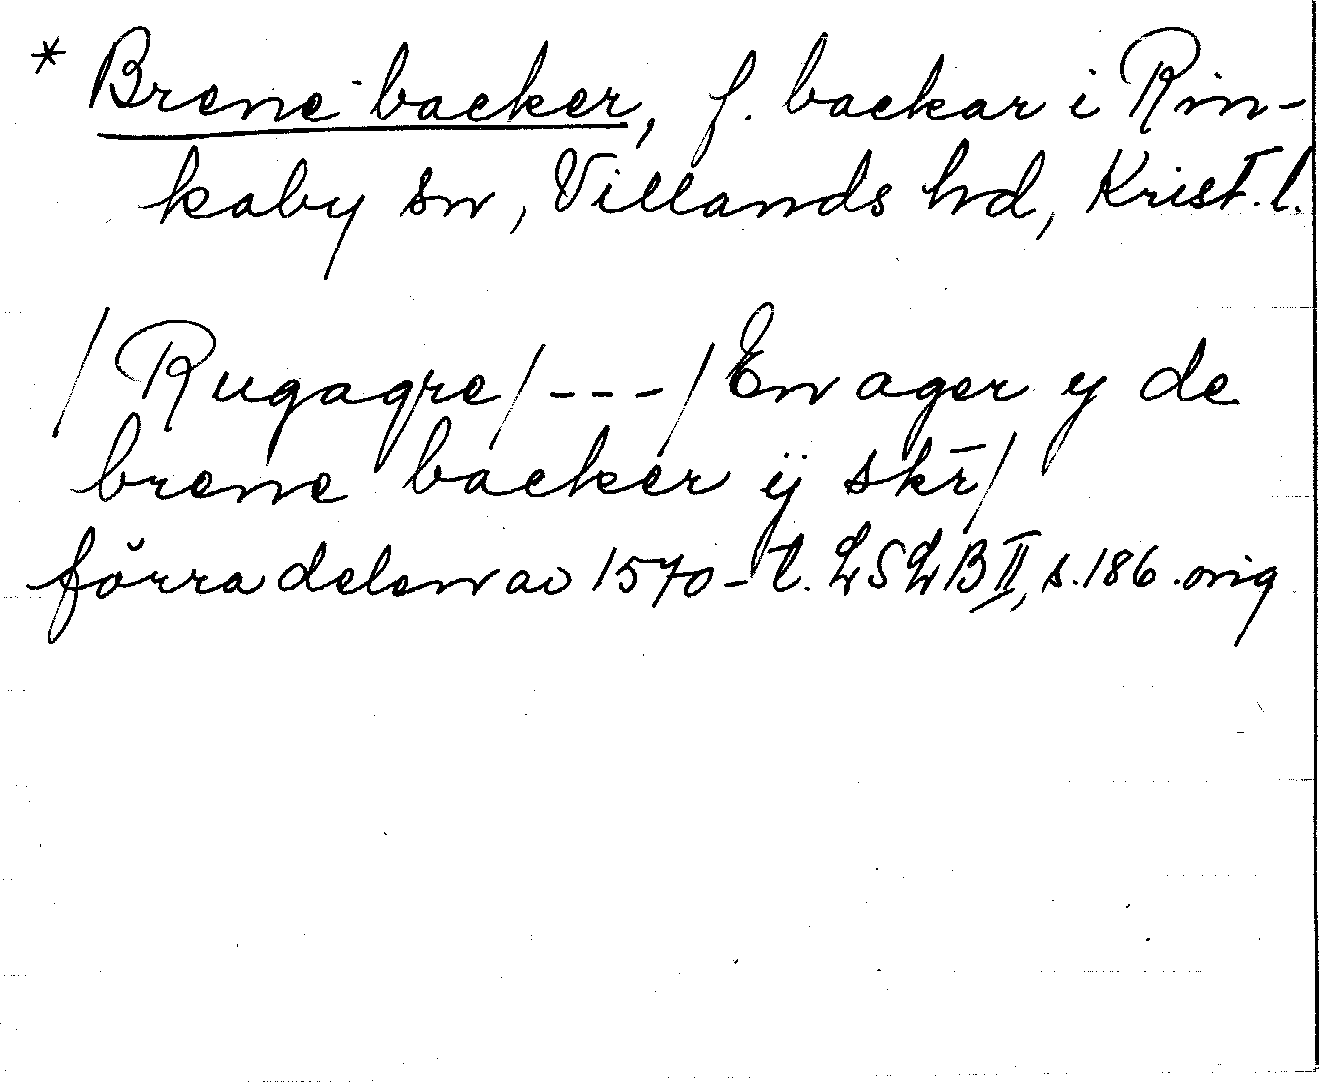 * Brene backer, f. backar i Rin-
kaby sn, Villands hd, Krist. l.
/Rugagre/---/En ager y de
brene backer ÿ skr̄/
förra delen av 1570-t. LSLB II, s. 186. orig